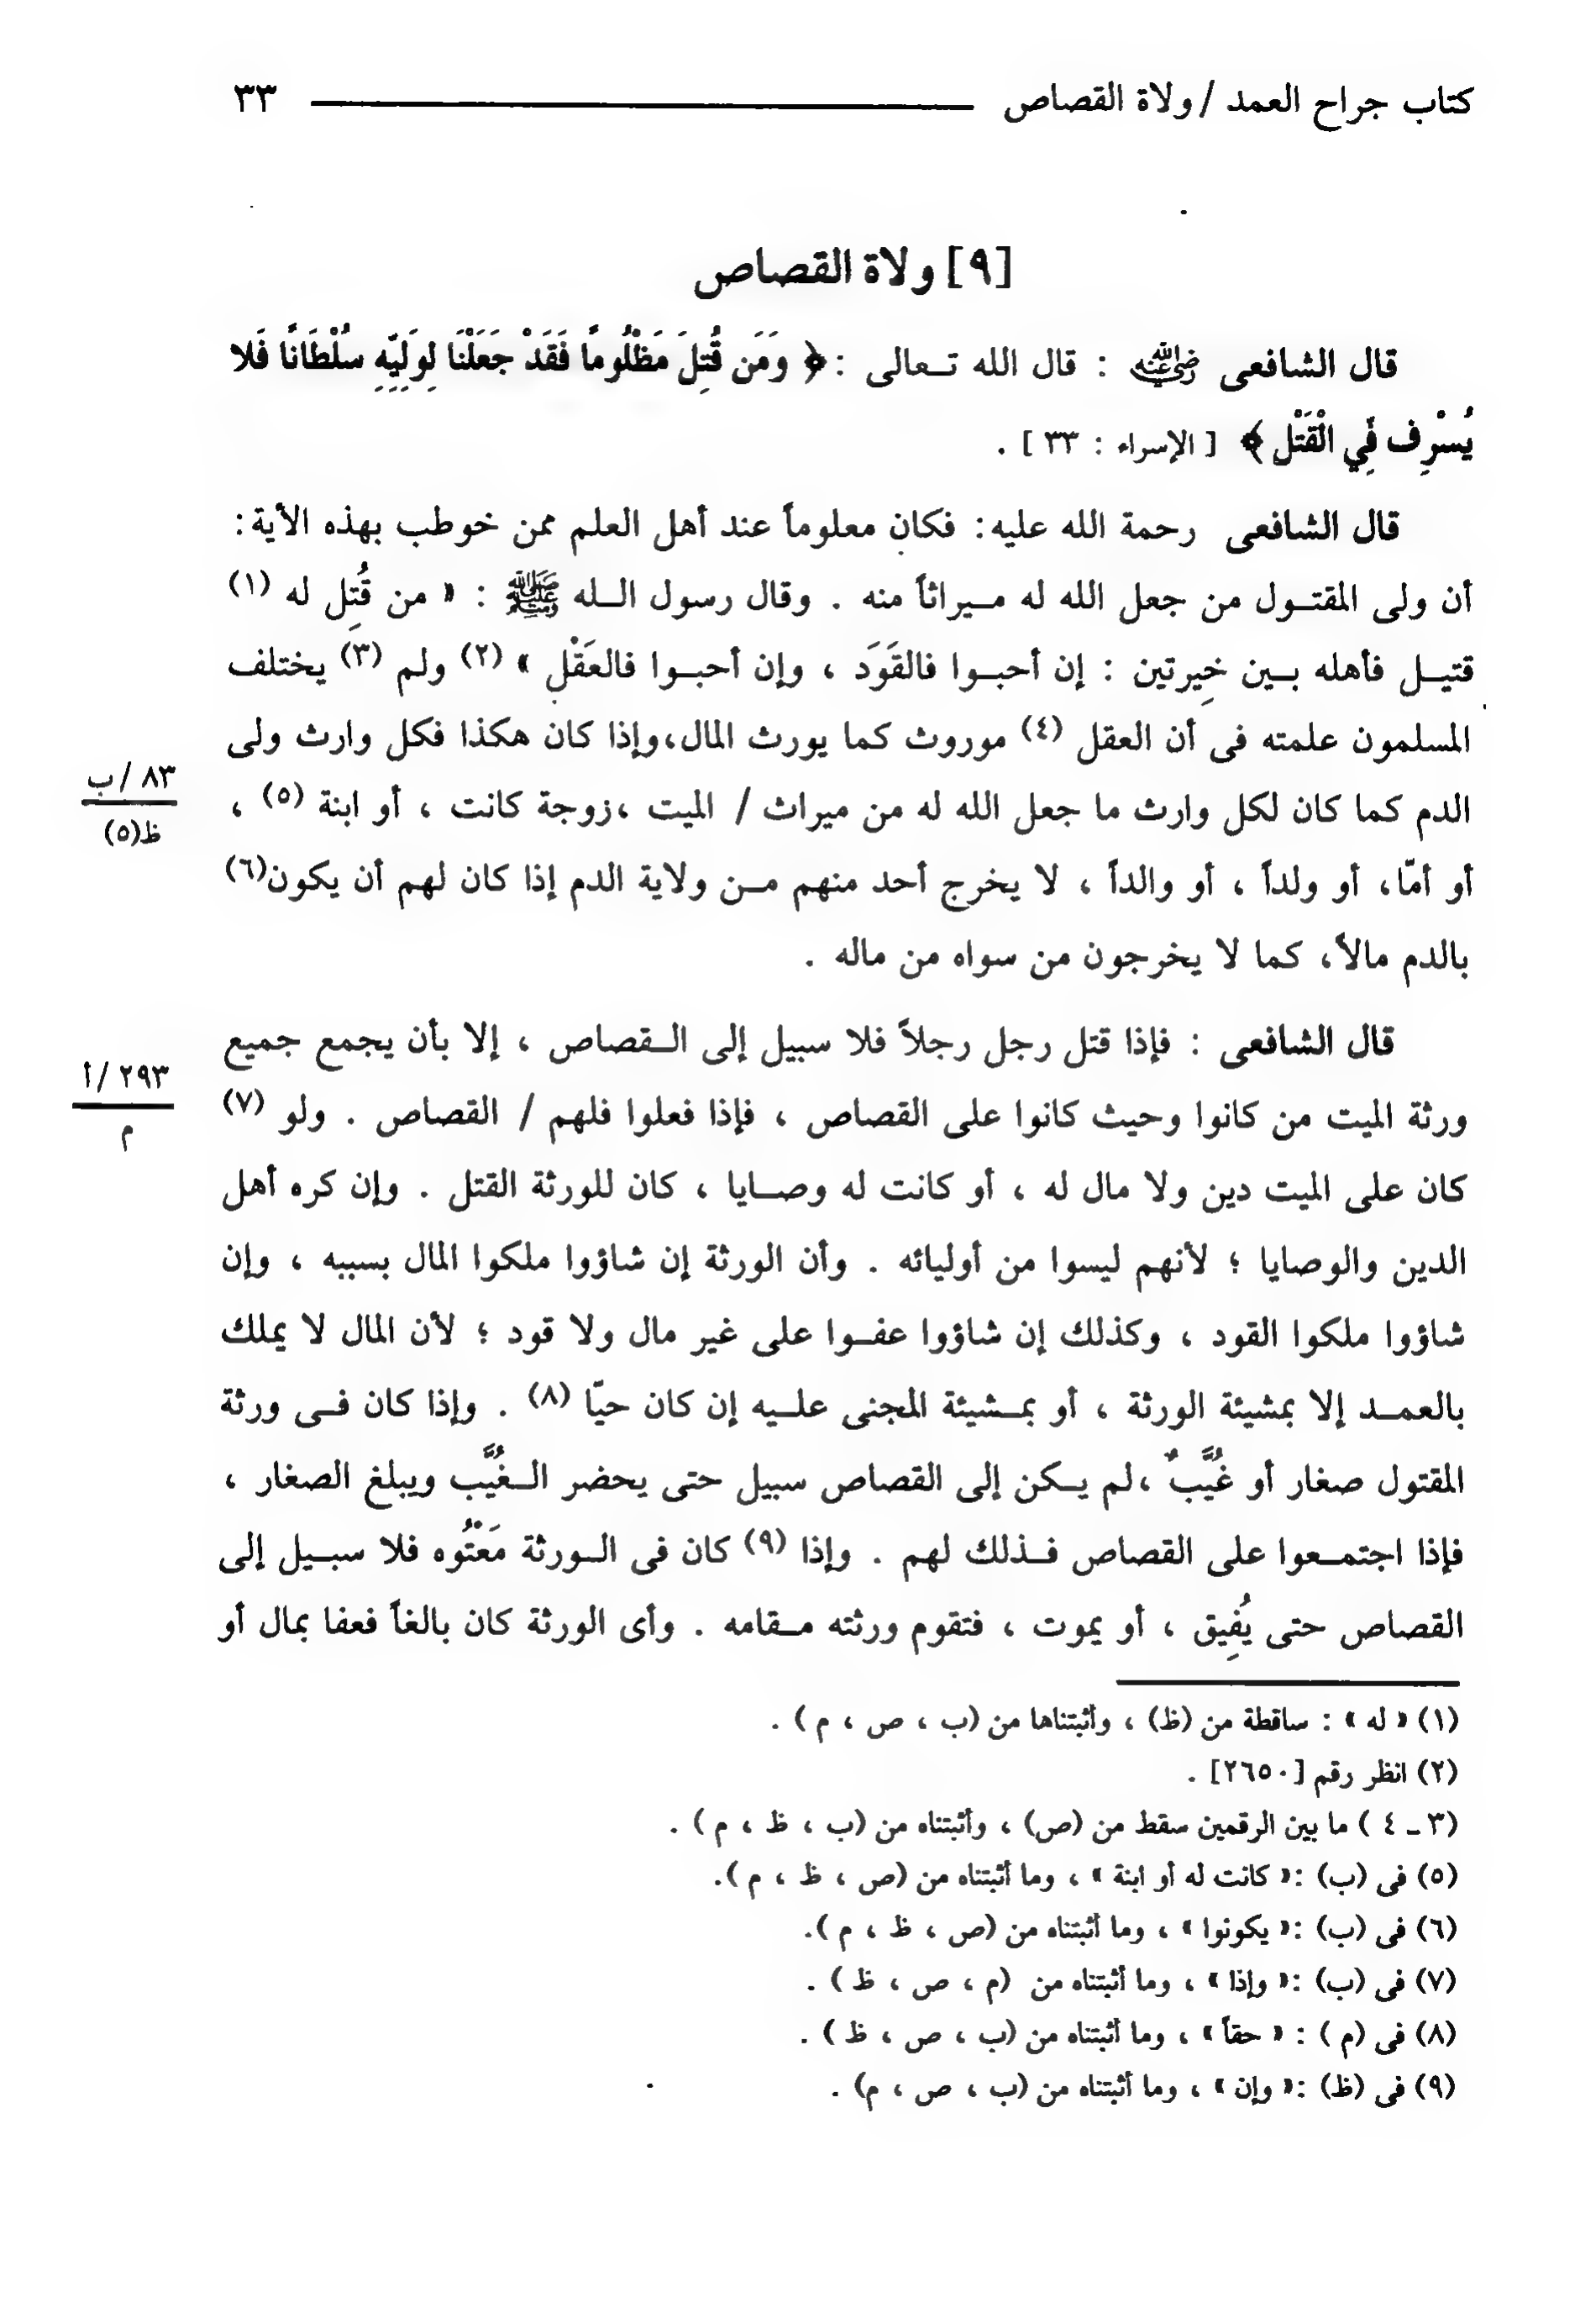 كتاب جراح العمد / ولاة القصاص ٣٣
[٩] ولاة القصاص
قال الشافعى رضي الله عنه : قال الله تعالى : ﴿ وَمَن قُتِلَ مَظْلُومًا فَقَدْ جَعَلْنَا لِوَلِيِّهِ سُلْطَانًا فَلا
يُسْرِف فِّي الْقَتْلِ ﴾ [ الإسراء : ٣٣ ] .
قال الشافعى رحمة الله عليه : فكان معلوماً عند أهل العلم ممن خوطب بهذه الأية :
أن ولى المقتول من جعل الله له ميراثاً منه . وقال رسول الله ﷺ : « من قُتِل له (١)
قتيل فأهله بين خِيرتين : إن أحبوا فالقَوَد ، وإن أحبوا فالعَقْل » (٢) ولم (٣) يختلف
المسلمون علمته فى أن العقل (٤) موروث كما يورث المال،وإذا كان هكذا فكل وارث ولى
الدم كما كان لكل وارث ما جعل الله له من ميراث / الميت ،زوجة كانت ، أو ابنة (٥) ،
٨٣ /ب
ظ(٥)
أو أمّا، أو ولداً ، أو والداً ، لا يخرج أحد منهم من ولاية الدم إذا كان لهم أن يكون(٦)
بالدم مالاً، كما لا يخرجون من سواه من ماله .
قال الشافعى : فإذا قتل رجل رجلاً فلا سبيل إلى القصاص ، إلا بأن يجمع جميع
٢٩٣ /أ
م
ورثة الميت من كانوا وحيث كانوا على القصاص ، فإذا فعلوا فلهم / القصاص . ولو (٧)
كان على الميت دين ولا مال له ، أو كانت له وصايا ، كان للورثة القتل . وإن كره أهل
الدين والوصايا ؛ لأنهم ليسوا من أوليائه . وأن الورثة إن شاؤوا ملكوا المال بسببه ، وإن
شاؤوا ملكوا القود ، وكذلك إن شاؤوا عفوا على غير مال ولا قود ؛ لأن المال لا يملك
بالعمد إلا بمشيئة الورثة ، أو بمشيئة المجنى عليه إن كان حيّا (٨) . وإذا كان فى ورثة
المقتول صغار أو غُيَّبٌ ،لم يكن إلى القصاص سبيل حتى يحضر الغُيَّب ويبلغ الصغار ،
فإذا اجتمعوا على القصاص فذلك لهم . وإذا (٩) كان فى الورثة مَعْتُوه فلا سبيل إلى
القصاص حتى يُفِيق ، أو يموت ، فتقوم ورثته مقامه . وأى الورثة كان بالغاً فعفا بمال أو
(١) « له » : ساقطة من (ظ) ، وأثبتناها من (ب ، ص ، م ) .
(٢) انظر رقم [٢٦٥٠] .
(٣ ـ ٤ ) ما بين الرقمين سقط من (ص) ، وأثبتناه من (ب ، ظ ، م ) .
(٥) فى (ب) :« كانت له أو ابنة » ، وما أثبتناه من (ص ، ظ ، م ).
(٦) فى (ب) :« يكونوا » ، وما أثبتناه من (ص ، ظ ، م ).
(٧) فى (ب) :« وإذا » ، وما أثبتناه من (م ، ص ، ظ ) .
(٨) فى (م ) : « حقاً » ، وما أثبتناه من (ب ، ص ، ظ ) .
(٩) فى (ظ) :« وإن » ، وما أثبتناه من (ب ، ص ، م) .